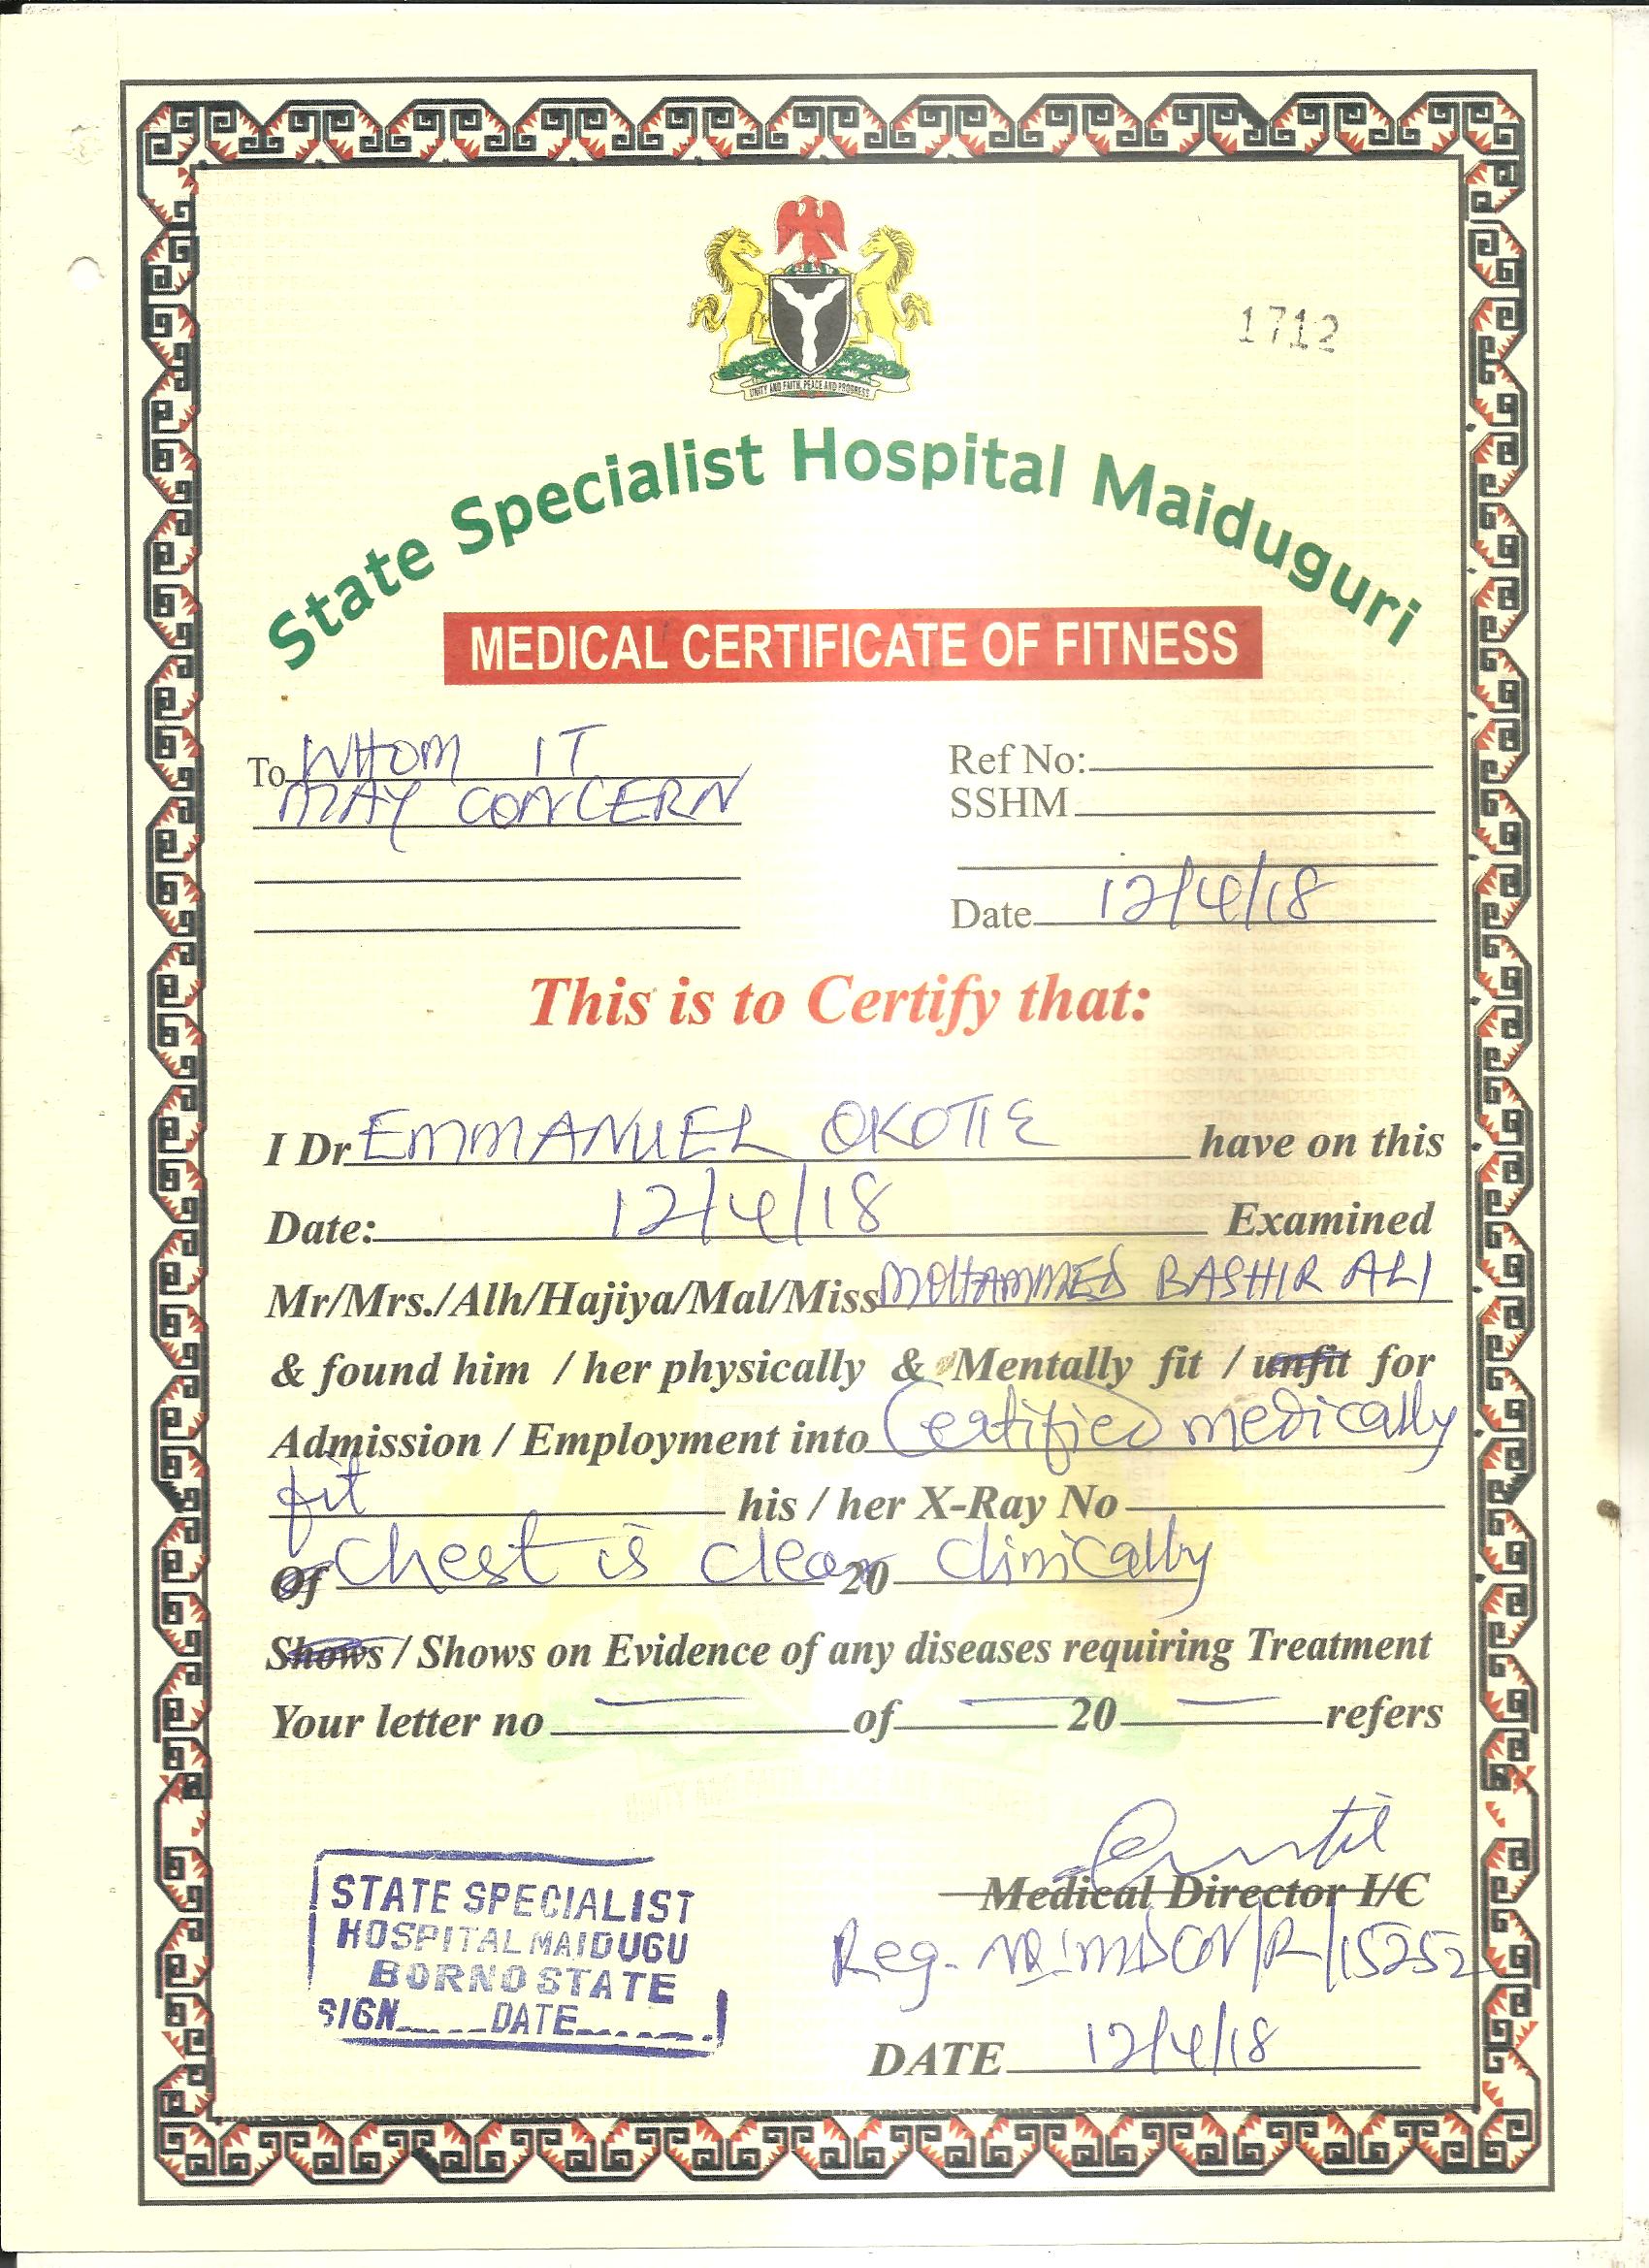 UNITY AND FAITH, PEACE AND PROGRESS
1712
State Specialist Hospital Maiduguri
MEDICAL CERTIFICATE OF FITNESS
To WHOM IT
MAY CONCERN
Ref No:
SSHM
Date 12/4/18
This is to Certify that:
I Dr EMMANUEL OKOTIE have on this
Date: 12/4/18 Examined
Mr/Mrs./Alh/Hajiya/Mal/Miss MOHAMMED BASHIR ALI
& found him / her physically & Mentally fit / unfit for
Admission / Employment into Certified medically
fit his / her X-Ray No
Of Chest is clear 20 clinically
Shows / Shows on Evidence of any diseases requiring Treatment
Your letter no of 20 refers
Medical Director I/C
STATE SPECIALIST
HOSPITAL MAIDUGU
BORNO STATE
SIGN DATE
Reg. No: MDCN/R/15252
DATE 12/4/18